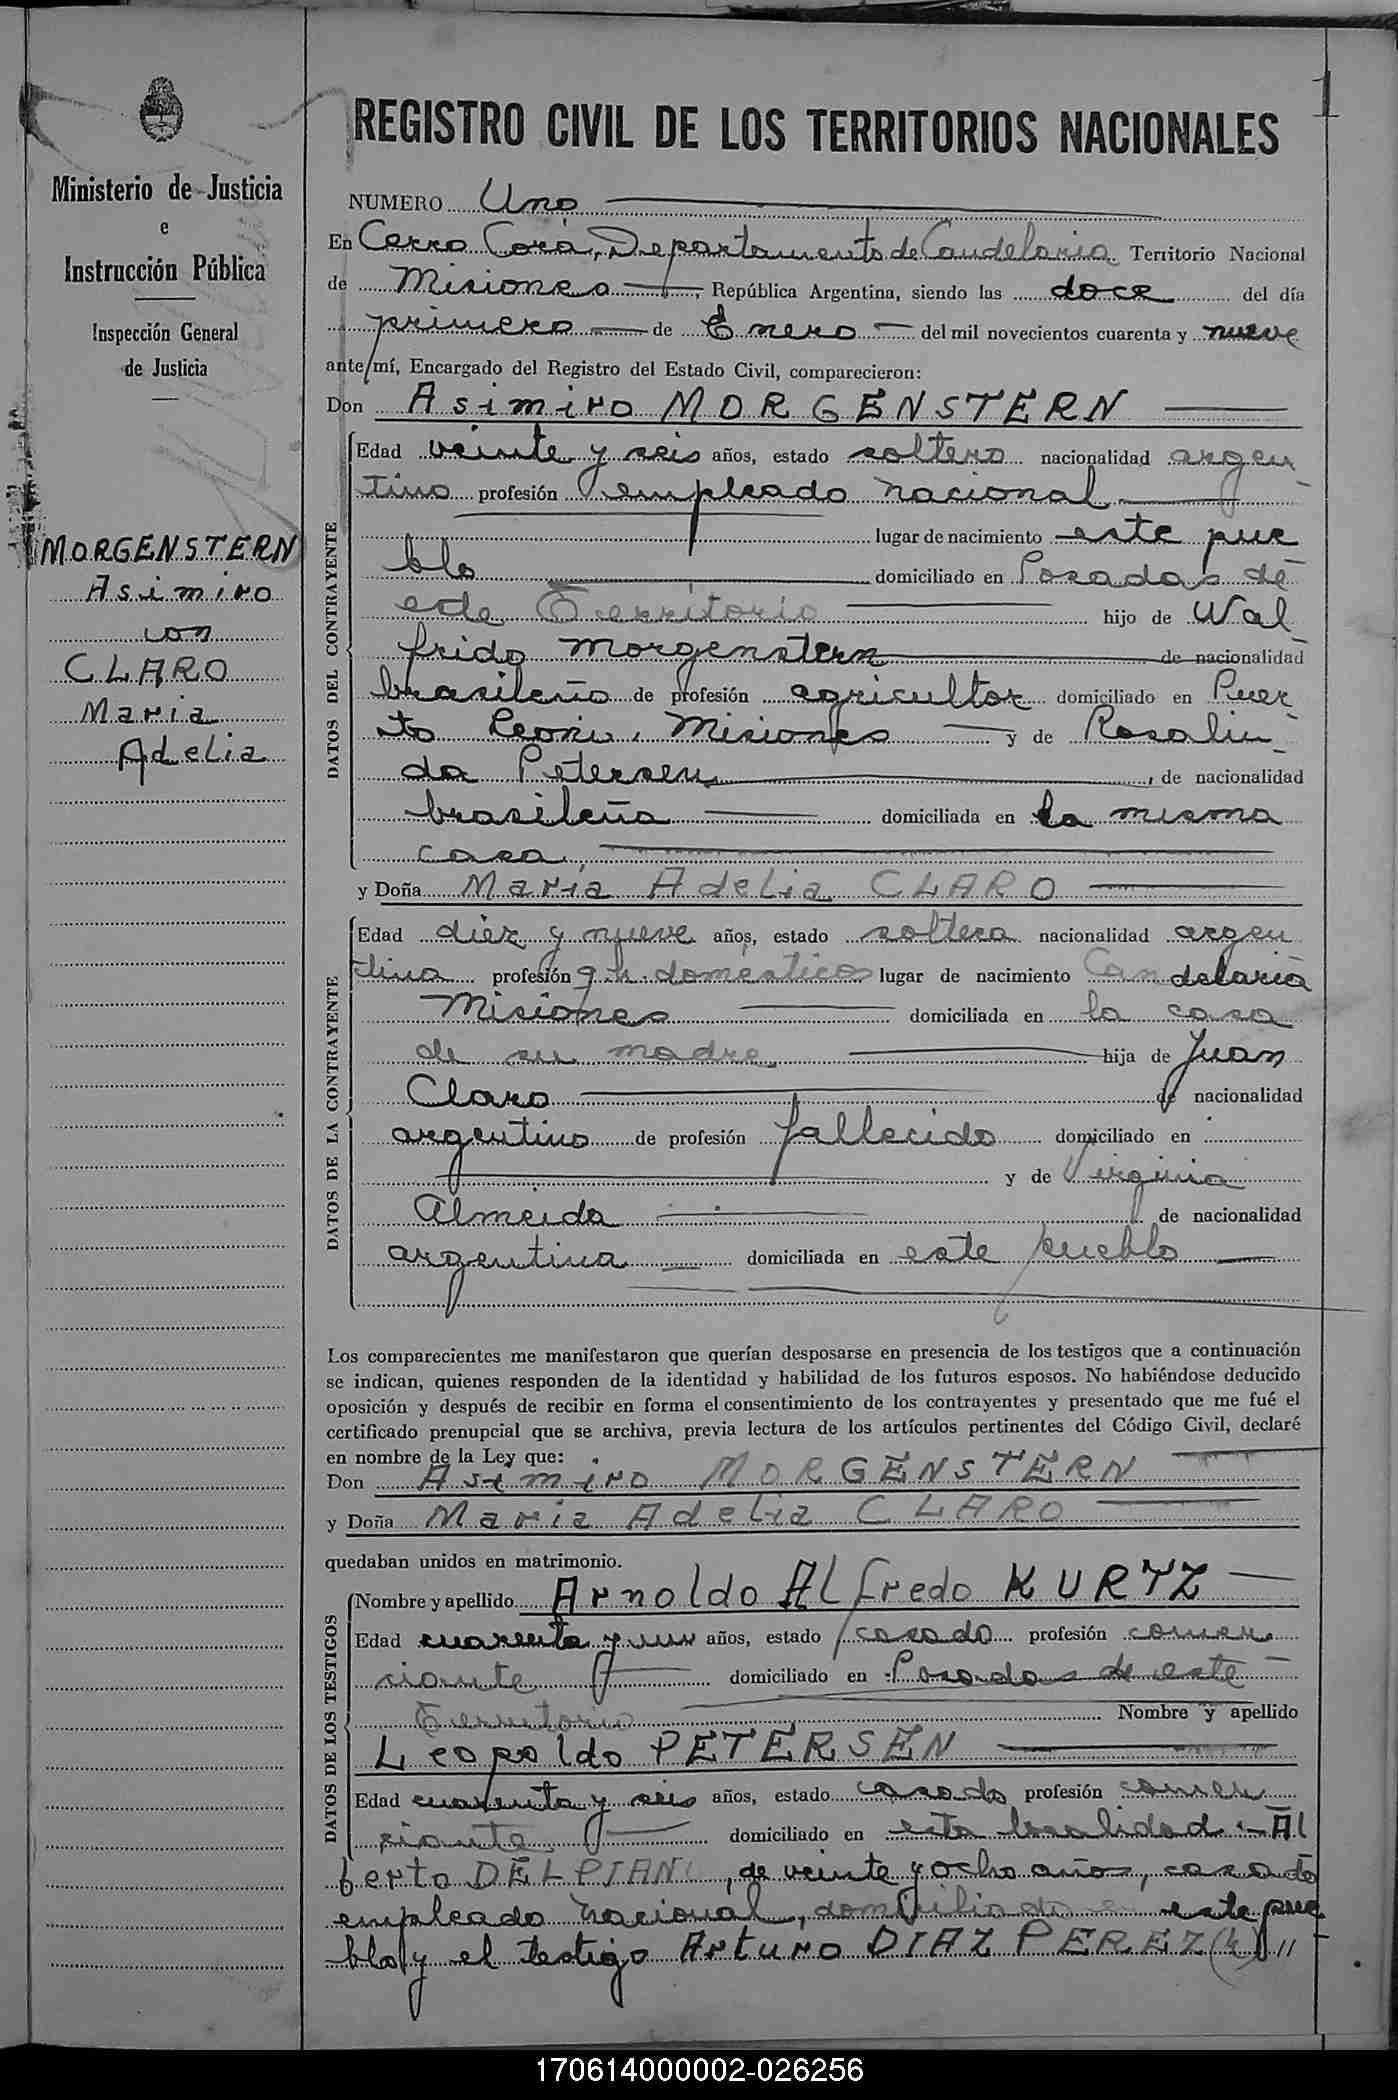 REGISTRO CIVIL DE LOS TERRITORIOS NACIONALES
Ministerio de Justicia
e
Instrucción Pública
Inspección General
de Justicia
MORGENSTERN
Asimiro
con
CLARO
Maria
Adelia
NUMERO Uno
En Cerro Corá, Departamento de Candelaria Territorio Nacional
de Misiones, República Argentina, siendo las doce del día
primero de Enero del mil novecientos cuarenta y nueve
ante mí, Encargado del Registro del Estado Civil, comparecieron:
Don Asimiro MORGENSTERN
DATOS DEL CONTRAYENTE
Edad veinte y seis años, estado soltero nacionalidad argen
tino profesión empleado nacional
lugar de nacimiento este pue
blo domiciliado en Posadas de
ede Territorio hijo de Wal
frido Morgenstern de nacionalidad
brasileño de profesión agricultor domiciliado en Puer
to Leoni, Misiones y de Rosalin
da Petersen, de nacionalidad
brasileña domiciliada en la misma
casa,
y Doña María Adelia CLARO
DATOS DE LA CONTRAYENTE
Edad diez y nueve años, estado soltera nacionalidad argen
tina profesión q.h. domésticos lugar de nacimiento Candelaria
Misiones domiciliada en la casa
de su madre, hija de Juan
Claro de nacionalidad
argentino de profesión fallecido domiciliado en
y de Virginia
Almeida de nacionalidad
argentina domiciliada en este pueblo
Los comparecientes me manifestaron que querían desposarse en presencia de los testigos que a continuación
se indican, quienes responden de la identidad y habilidad de los futuros esposos. No habiéndose deducido
oposición y después de recibir en forma el consentimiento de los contrayentes y presentado que me fué el
certificado prenupcial que se archiva, previa lectura de los artículos pertinentes del Código Civil, declaré
en nombre de la Ley que:
Don Asimiro MORGENSTERN
y Doña Maria Adelia CLARO
quedaban unidos en matrimonio.
DATOS DE LOS TESTIGOS
Nombre y apellido Arnoldo Alfredo KURTZ
Edad cuarenta y un años, estado casado profesión comer
ciante domiciliado en Posadas de este
Territorio Nombre y apellido
Leopoldo PETERSEN
Edad cuarenta y seis años, estado casado profesión comer
ciante domiciliado en esta localidad.- Al
berto DELPIANO, de veinte y ocho años, casado
empleado nacional, domiciliado en este pue
blo y el testigo Arturo DIAZ PEREZ
170614000002-026256